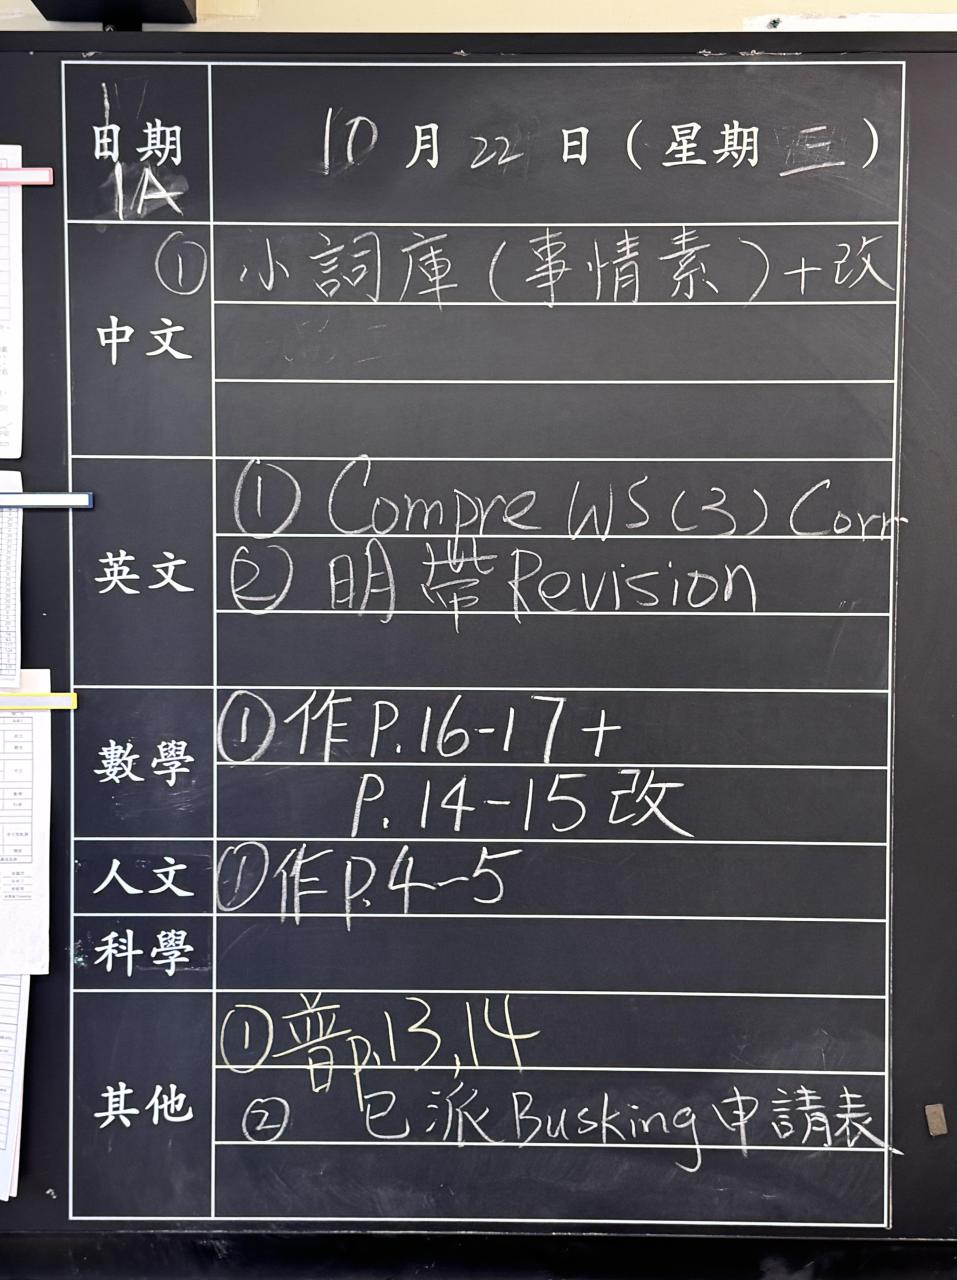 日期
1A
10月22日（星期三）
中文
① 小詞庫（事情素）+改
英文
① Compre WS(3) Corr
② 明帶Revision
數學
① 作P.16-17+
P.14-15改
人文
① 作P.4-5
科學
其他
① 普p.13,14
② 已派Busking申請表